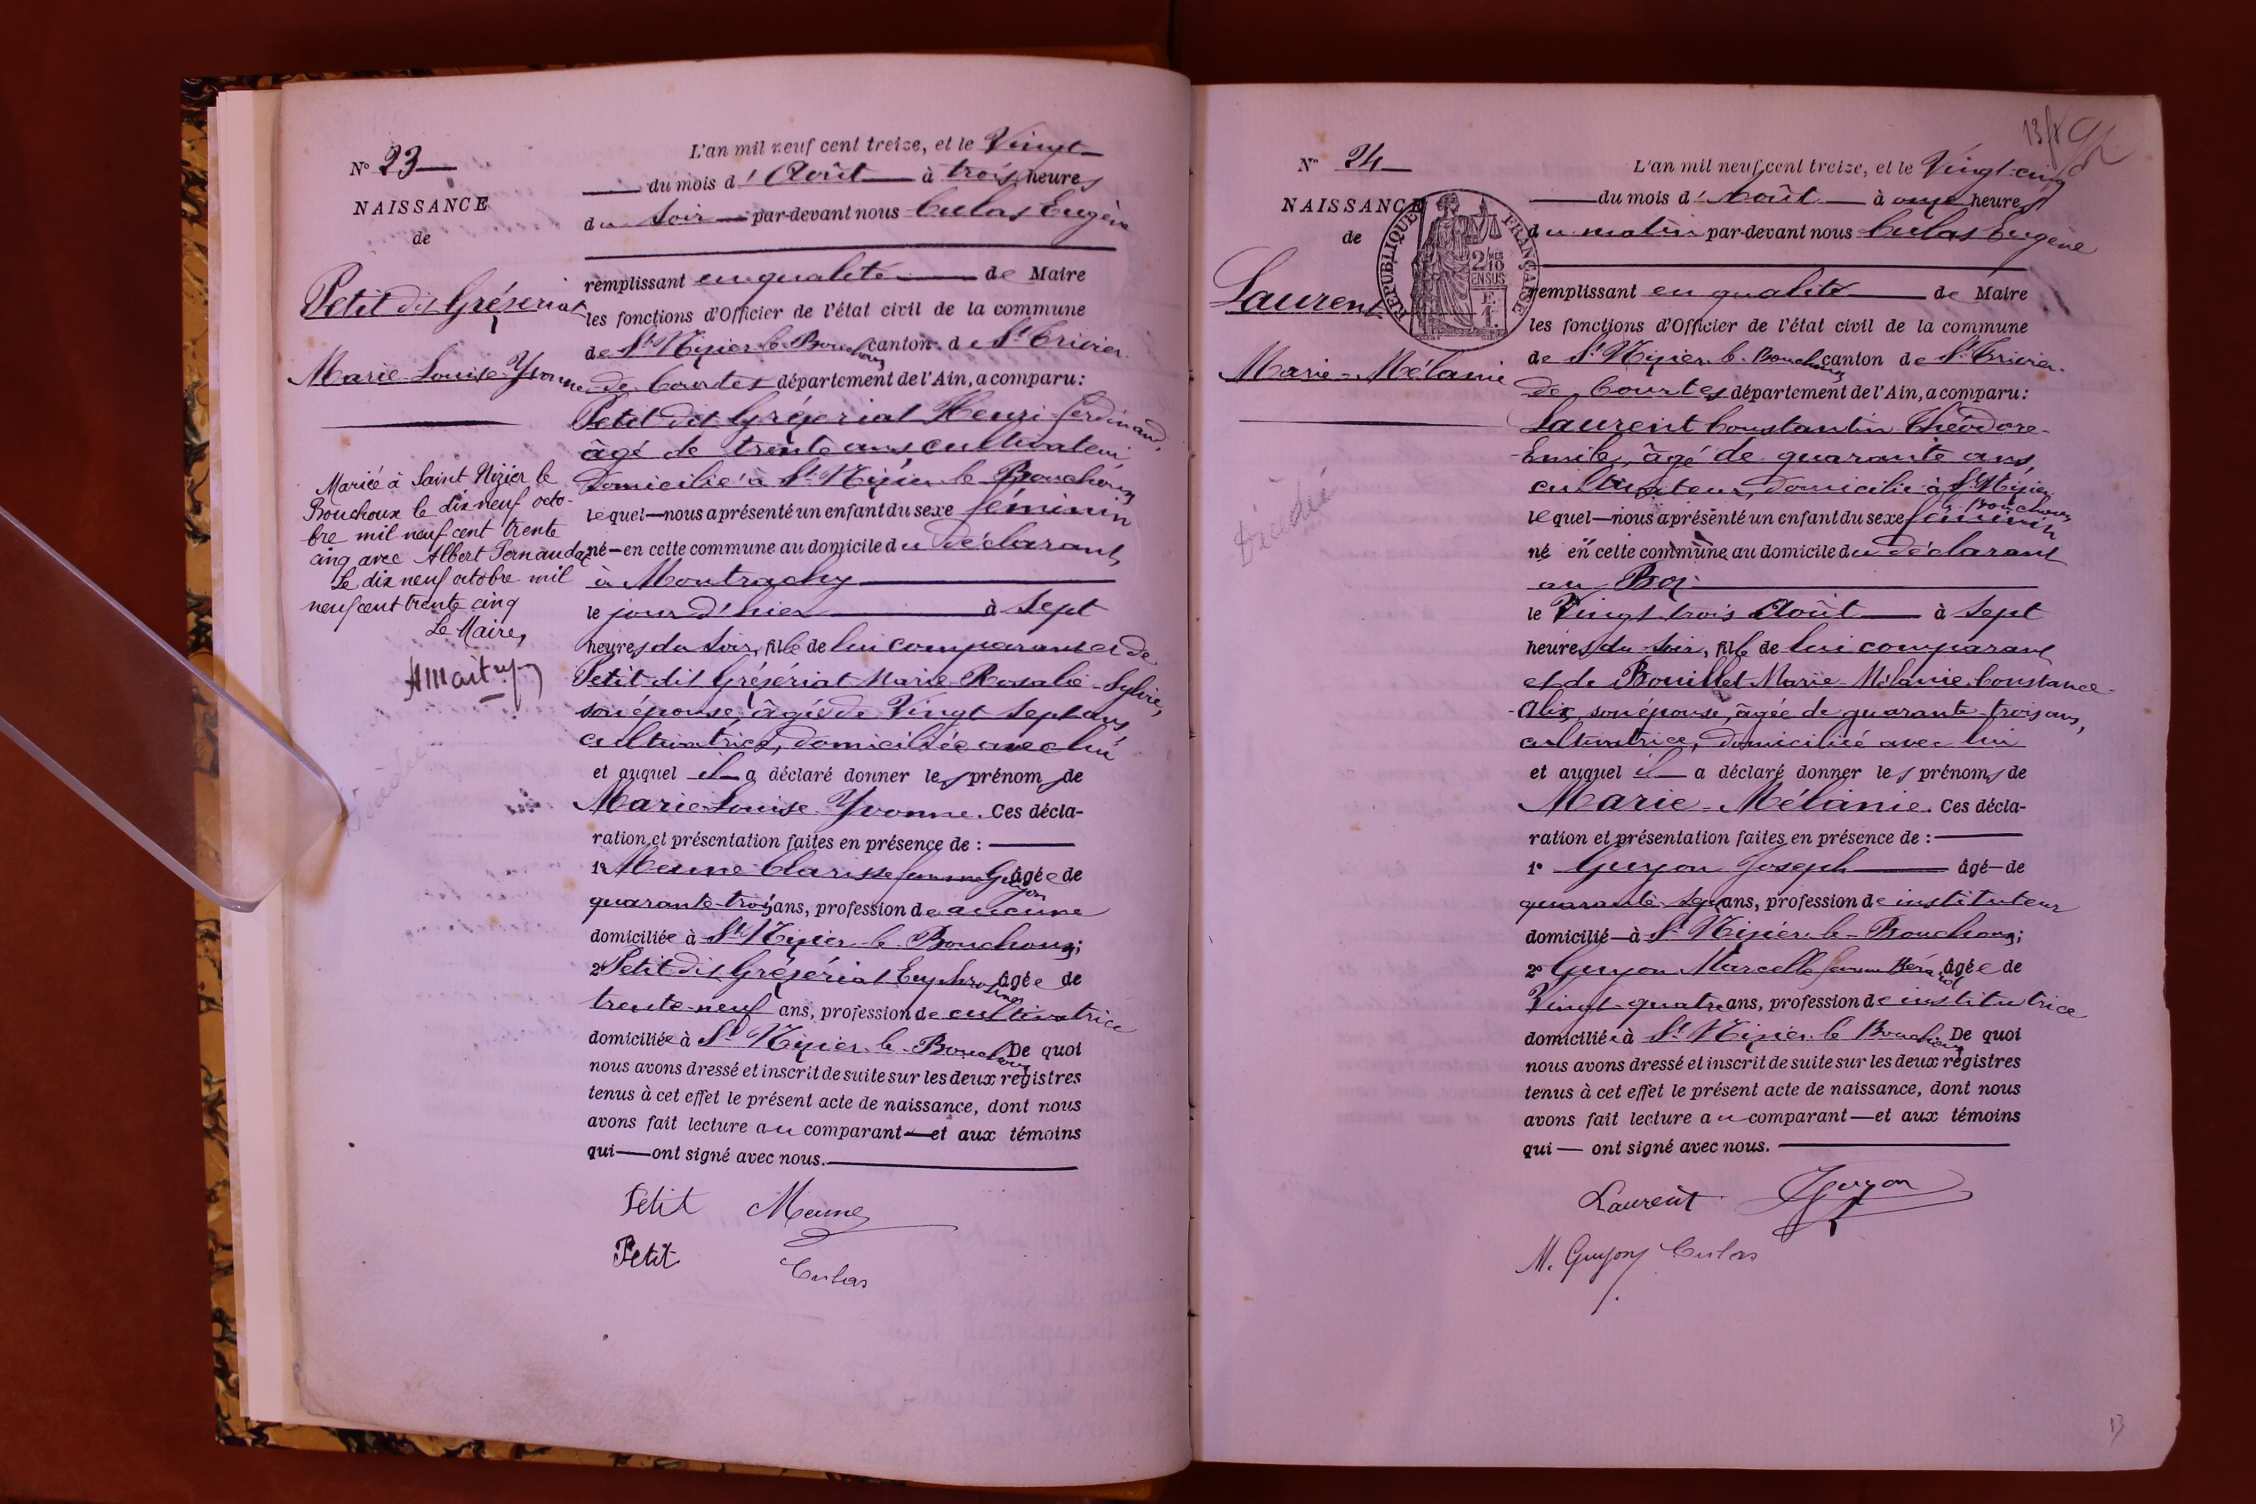 N° 23
NAISSANCE
de
Petit dit Grézeriat
Marie-Louise-Yvonne
Mariée à Saint Nizier le
Bouchoux le dix neuf octo-
bre mil neuf cent trente
cinq avec Albert Pernaudat
Le dix neuf octobre mil
neuf cent trente cinq
Le Maire,
L'an mil neuf cent treize, et le Vingt
du mois d'Août à trois heures
du soir par-devant nous Culas Eugène
remplissant en qualité de Maire
les fonctions d'Officier de l'état civil de la commune
de St Nizier-le-Bouchoux canton de St Trivier
de Courtes département de l'Ain, a comparu:
Petit dit Grézeriat Henri-Ferdinand,
âgé de trente ans cultivateur
domicilié à St Nizier le Bouchoux
lequel nous a présenté un enfant du sexe féminin
né en cette commune au domicile du déclarant,
à Montrachy
le jour d'hier à sept
heures du soir, fille de lui comparant et de
Petit dit Grézériat Marie-Rosalie-Sylvie,
son épouse, âgée de Vingt sept ans
cultivatrice, domiciliée avec lui
et auquel il a déclaré donner les prénoms de
Marie-Louise-Yvonne. Ces décla-
ration et présentation faites en présence de :
1° Meune Clarisse femme Guyon âgée de
quarante-trois ans, profession de aucune
domiciliée à St Nizier-le-Bouchoux;
2° Petit dit Grézériat Euphrosine âgée de
trente-neuf ans, profession de cultivatrice
domiciliée à St Nizier-le-Bouchoux De quoi
nous avons dressé et inscrit de suite sur les deux registres
tenus à cet effet le présent acte de naissance, dont nous
avons fait lecture au comparant et aux témoins
qui ont signé avec nous.
Petit Meune
Petit Culas
13
N° 24
NAISSANCE
de
Laurent
Marie-Mélanie
Décédé
RÉPUBLIQUE FRANÇAISE
2/10
EN SUS
L'an mil neuf cent treize, et le Vingt-cinq
du mois d'Août à onze heures
du matin par-devant nous Culas Eugène
remplissant en qualité de Maire
les fonctions d'Officier de l'état civil de la commune
de St Nizier-le-Bouchoux canton de St Trivier
de Courtes département de l'Ain, a comparu:
Laurent Constantin Théodore-
Emile, âgé de quarante ans,
cultivateur, domicilié à St Nizier
Bouchoux
lequel nous a présenté un enfant du sexe féminin
né en cette commune au domicile du déclarant
au
le Vingt trois Août à sept
heures du soir, fille de lui comparant
et de Bouillet Marie-Mélanie-Constance-
Alix, son épouse, âgée de quarante-trois ans,
cultivatrice, domiciliée avec lui
et auquel il a déclaré donner les prénoms de
Marie-Mélanie. Ces décla-
ration et présentation faites en présence de :
1° Guyon Joseph âgé de
quarante-sept ans, profession de instituteur
domicilié à St Nizier-le-Bouchoux;
2° Guyon Marcelle femme âgée de
Vingt-quatre ans, profession de institutrice
domiciliée à St Nizier-le Bouchoux De quoi
nous avons dressé et inscrit de suite sur les deux registres
tenus à cet effet le présent acte de naissance, dont nous
avons fait lecture au comparant et aux témoins
qui ont signé avec nous.
Laurent JGuyon
M. Guyon Culas
13